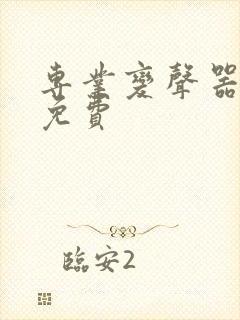 專業變聲器
免費
臨安2